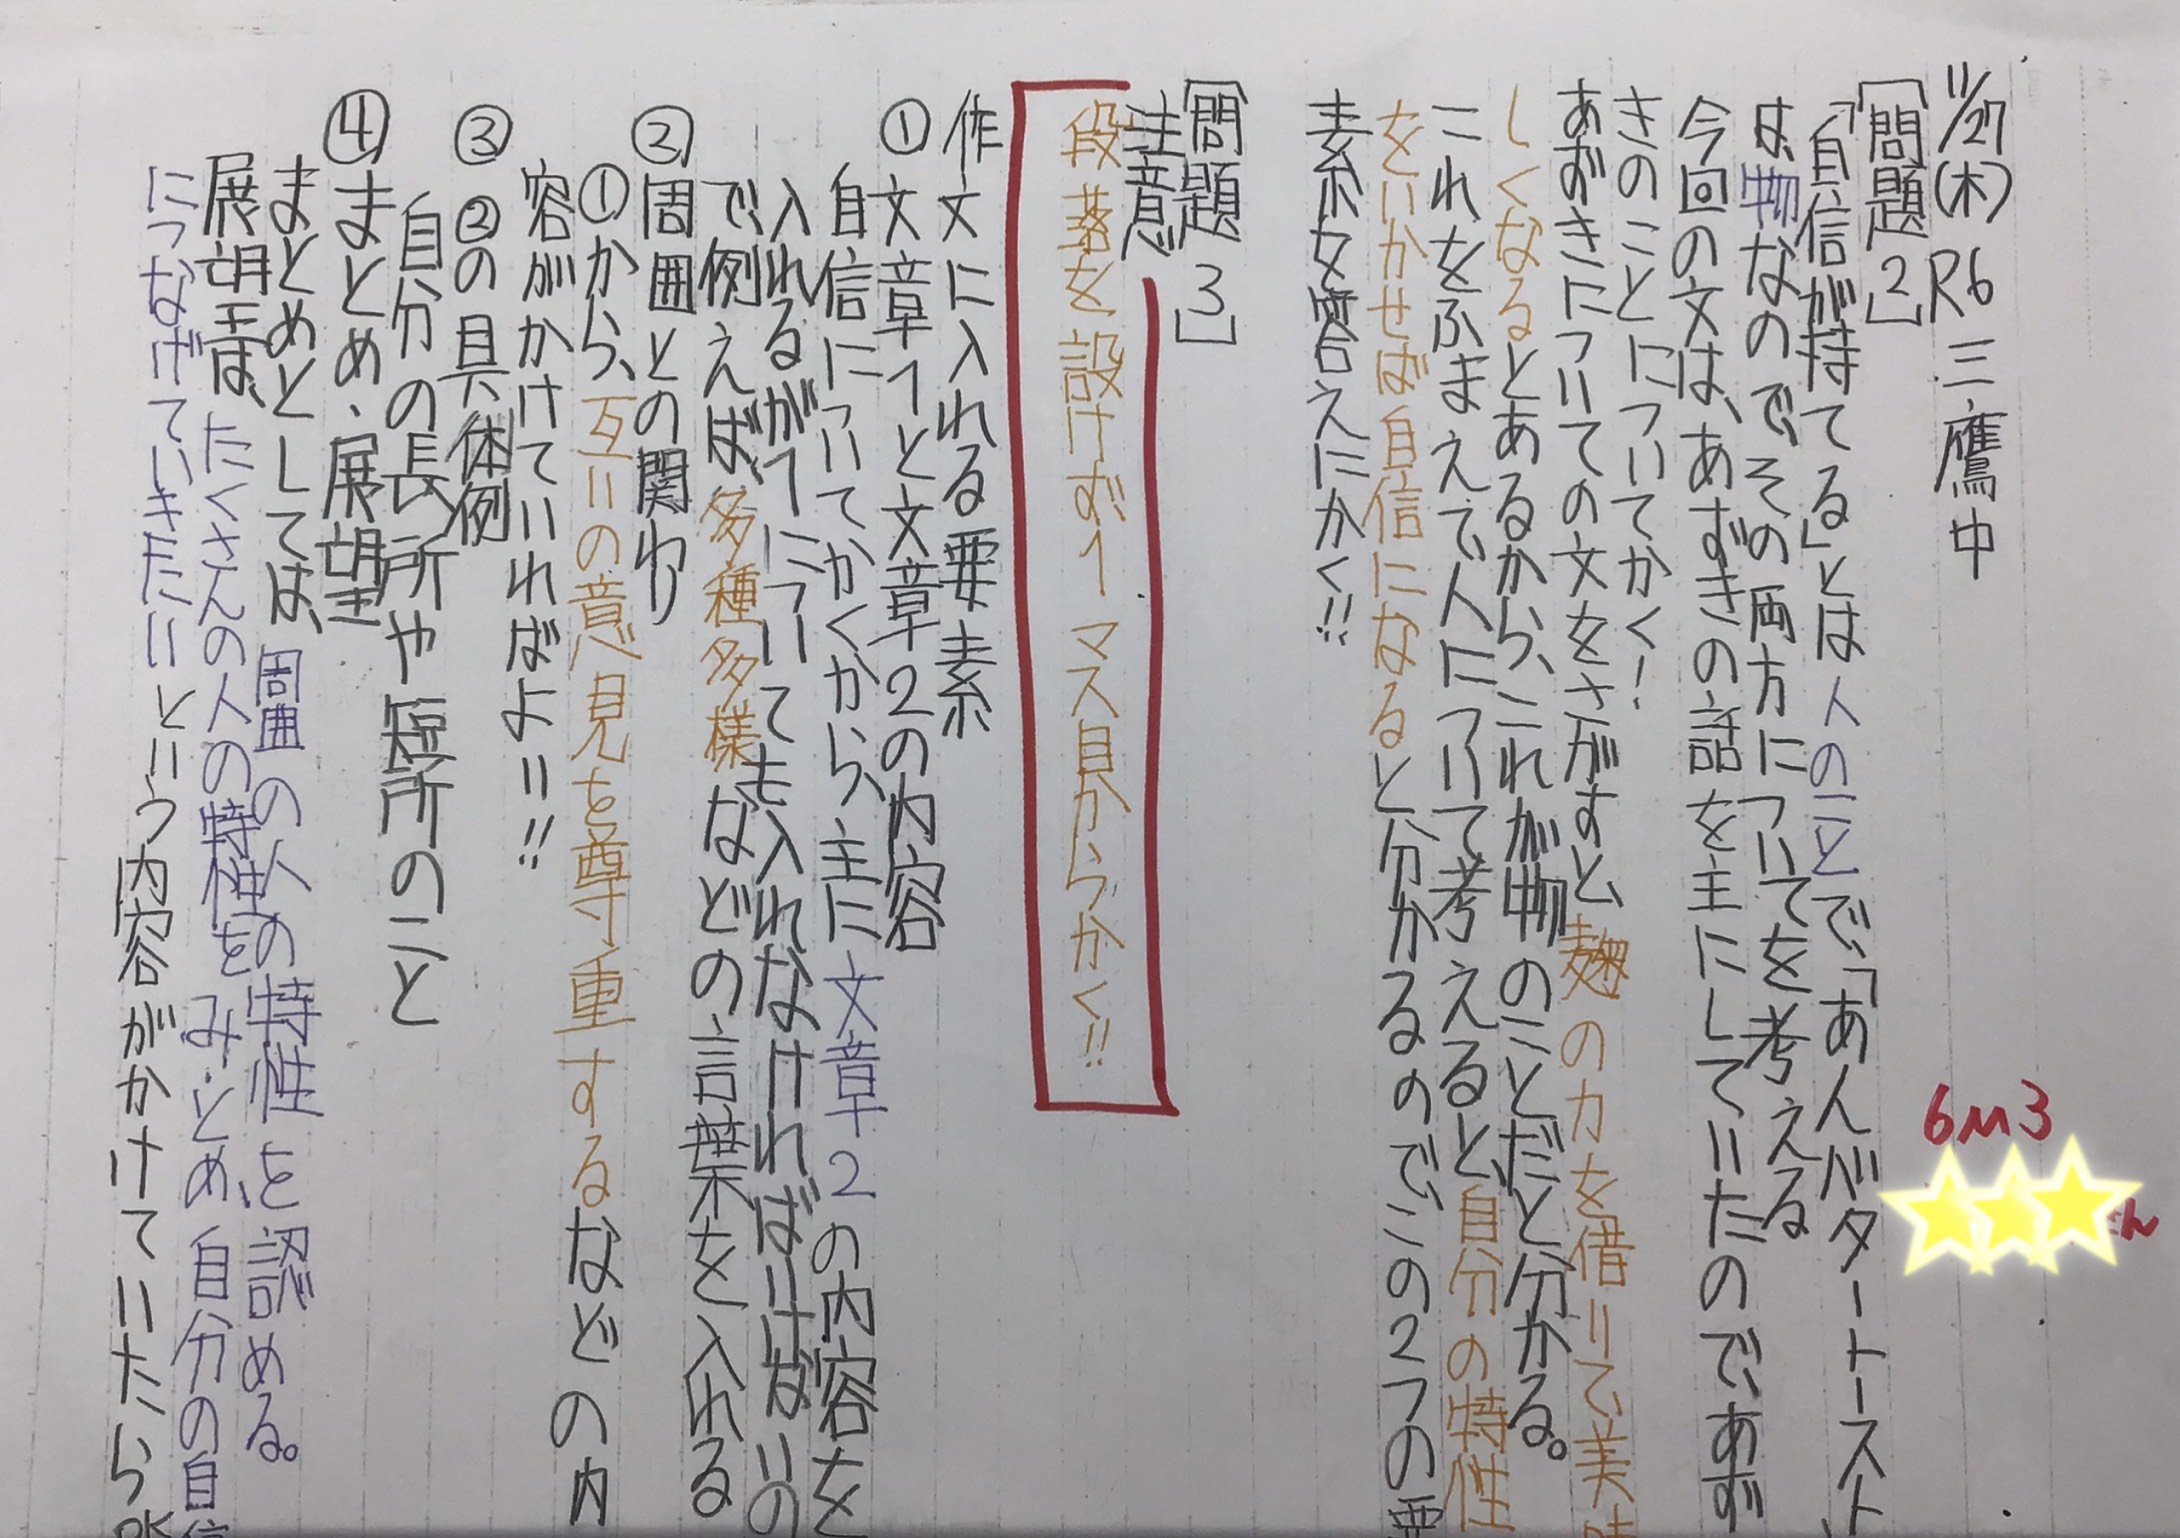 11/27(木) R6 三鷹中
6M3
[問題2]
「自信が持てる」とは人のことで、「あんバタートースト」
は物なのでその両方についてを考える
今回の文は、あずきの話を主にしていたのであず
きのことについてかく!
あずきについての文をさがすと麹の力を借りて美味
しくなるとあるから、これが物のことだと分かる。
これをふまえて人について考えると、自分の特性
をいかせば自信になると分かるのでこの2つの要
素を答えにかく!!
[問題3]
注意!
段落を設けず1マス目からかく!!
作文に入れる要素
①文章1と文章2の内容
自信についてかくから、主に文章2の内容を
入れるが1についても入れなければいけないの
で例えば、多種多様などの言葉を入れる
②周囲との関わり
①から、互いの意見を尊重するなどの内
容がかけていればよい!!
③②の具体例
自分の長所や短所のこと
④まとめ・展望
まとめとしては、周囲の人の特性を認める。
展望は、たくさんの人の特性をみとめ、自分の自信
につなげていきたいという内容がかけていたらOK